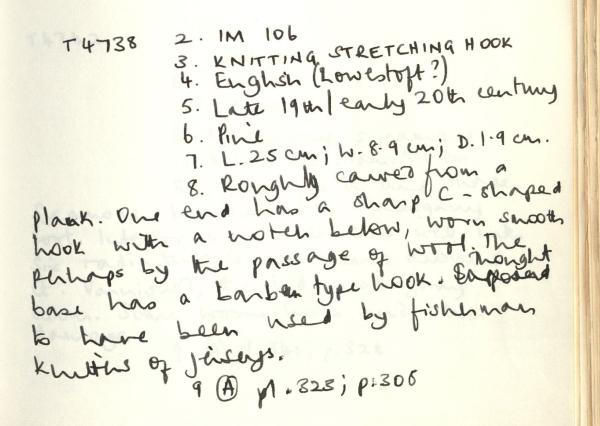 T4738 2. IM 106
3. KNITTING STRETCHING HOOK
4. English (Lowestoft?)
5. Late 19th/early 20th century
6. Pine
7. L. 25 cm; W. 8.9 cm; D. 1.9 cm.
8. Roughly carved from a
plank. One end has a sharp C-shaped
hook with a notch below, worn smooth
perhaps by the passage of wool. The
base has a type hook. Thought
to have been used by fisherman
knitters of jerseys.
9 (A) pl. 323; p. 306